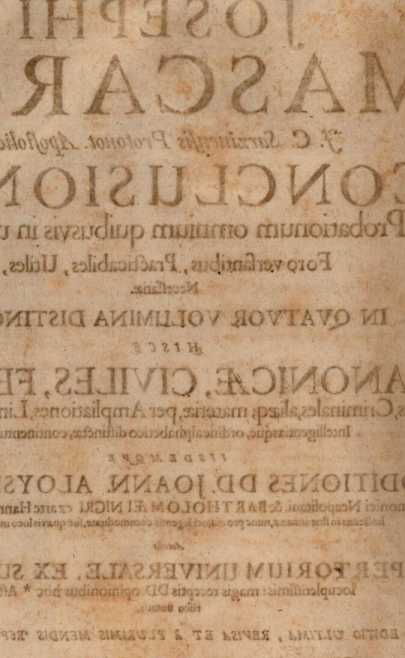 JOSEPHI
MASCAR
J. C. Sarzinensis Protonot. Apostolic
CONCLUSION
Probationum omnium quibusvis in u
Foro versantibus, Practicabiles, Utiles,
Necessariæ.
IN QVATVOR VOLUMINA DISTINC
HISCE
ANONICÆ, CIVILES, FE
s, Criminales, aliæq; materiæ, per Ampliationes, Lim
Intelligentiasque, ordine alphabetico distincte, continentu
IISDEMQUE
DDITIONES DD. JOANN. ALOYS
nonici Neapolitani, & BARTHOLOMÆI NIGRI
PERTORIUM UNIVERSALE, EX SU
locupletissimis magis receptis DD. opinionibus hoc *
EDITIO ULTIMA, REVISA ET A PLURIMIS MENDIS